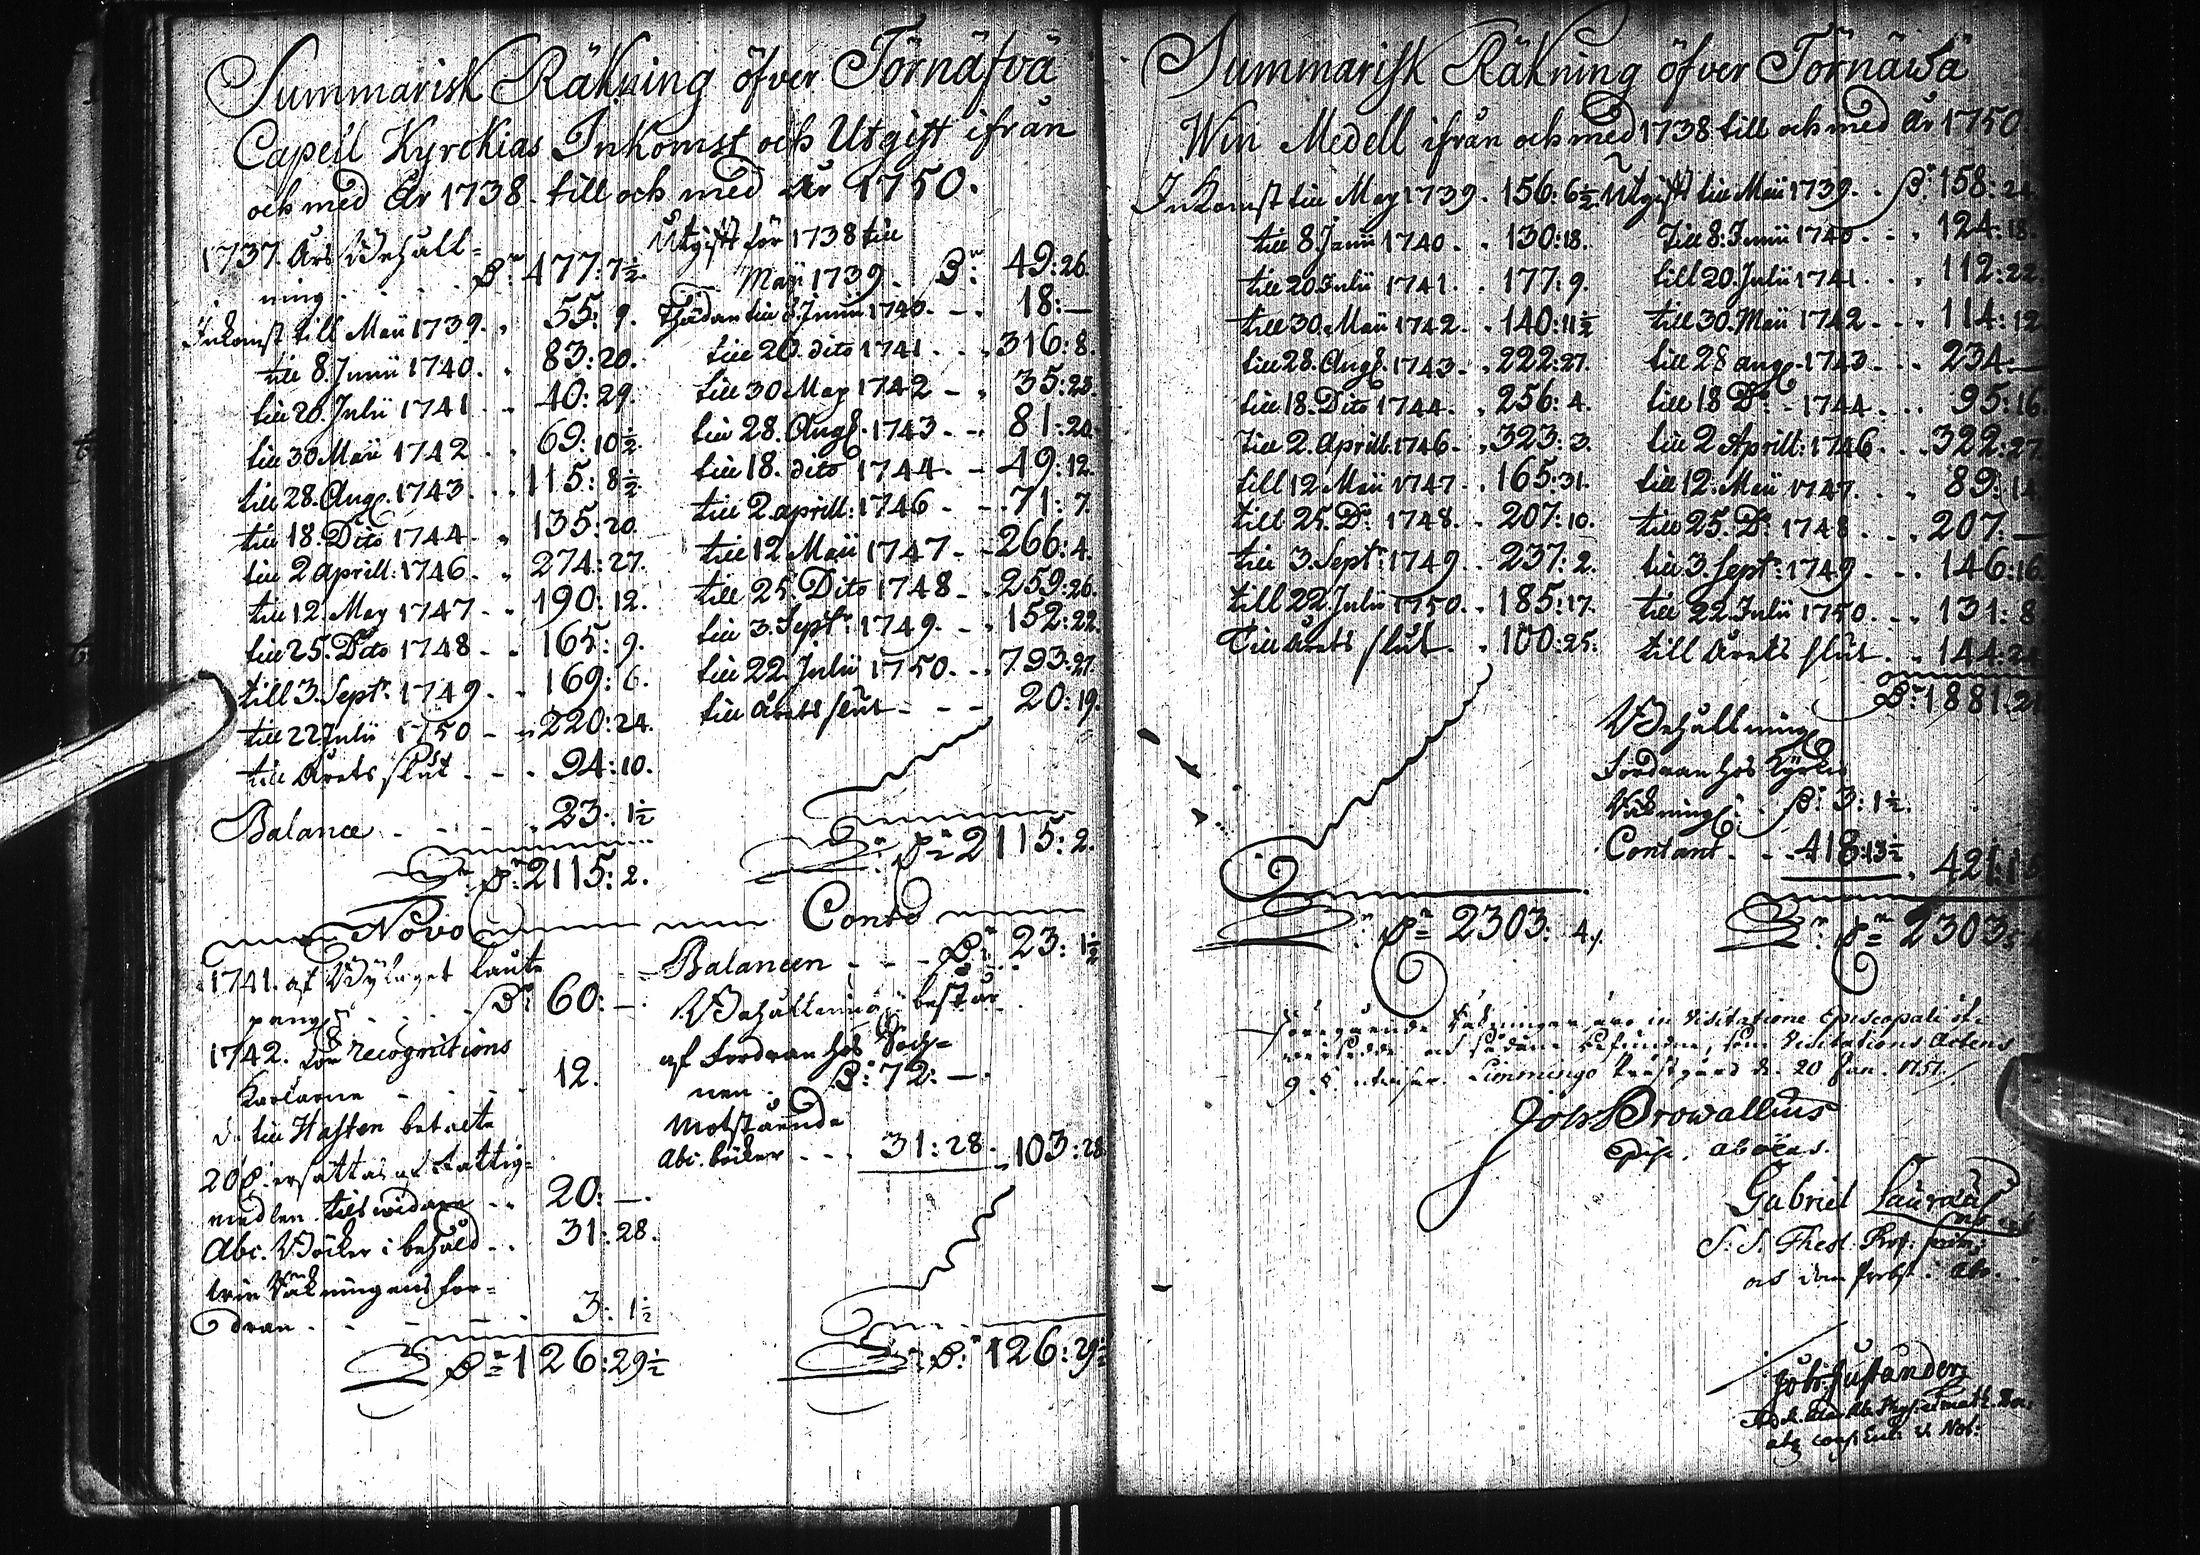 Summarisk Räkning öfver Törnäfvä
Capell Kyrckias Inkomst och Utgift ifrån
och med År 1738 till och med År 1750.
1737. Års Behåll=
ning . . . . P:r 477:7½
Inkomst till Maii 1739. . 55: 9.
till 8. Junii 1740. . 83:20.
till 20. Julii 1741 . . 40:29.
till 30 Maii 1742 . . 69:10½
till 28. Aug. 1743. . . 115:8½
till 18. Dito 1744 - . 135:20.
till 2 aprill: 1746. . 274:27.
till 12. May 1747 - . 190:12.
till 25. Dito 1748 - . 165: 9.
till 3. Sept:r 1749. . 169: 6.
till 22 Julii 1750 - . 220:24.
till Årets slut . - . 94:10.
Balance - . - . 23: 1½
P:r 2115:2.
Utgift för 1738 till
Maii 1739. P:r 49:26.
till 8. Junii 1740. - . 18:—
till 20. dito 1741 . . . 316:8.
till 30 May 1742 - . 35:23.
till 28. Aug. 1743 . - . 81:20.
till 18. dito 1744. - 49:12.
till 2 aprill: 1746 - - . 71: 7.
till 12. Maii 1747 - - 266:4.
till 25. Dito 1748 - . 259:26.
till 3. Sept:r 1749. - . 152:22.
till 22. Julii 1750. . . 793:27.
till årets slut - - - 20:19.
P:r 2115:2.
Novo Conto
1741. af
P:r 60:—.
1742. recognitions
Karlarne - . . 12.
betalte
20 ersättas af Fattig=
medlen tils widare . . 20:—.
Abc. Böcker i behåld . . 31:28.
Räkningens for=
dran . - . - . 3: 1½
P:r 126:29½
Balancen - - - P:r 23: 1½
Behållning består
af Fordran hos Sock=
nen . P:r 72:—.
Motstående
Abc. böcker - - . 31:28. 103:28
P:r 126:29½
Summarisk Räkning öfver Törnäwä
Win Medell ifrån och med 1738 till och med År 1750
Inkomst till May 1739. 156:6½
till 8 Junii 1740. . 130:18.
till 20 Julii 1741. . 177:9.
till 30. Maii 1742. . 140:11½
till 28. Aug. 1743. . 222:27.
till 18. Dito 1744. . 256: 4.
till 2. Aprill. 1746. . 323: 3.
till 12. Maii 1747. . 165:31.
till 25. D:o 1748. . 207:10.
till 3. Sept:r 1749. . 237:2.
till 22 Julii 1750. . 185:17.
Till årets slut. . 100:25.
P:r 2303: 4.
Utgift till Maii 1739. . P:r 158:24
till 8: Junii 1740 - . 124:18.
till 20. Julii 1741. . . 112:22
till 30. Maii 1742 - . . 114:12
till 28 aug. 1743 - . . 234 —
till 18 D:o - 1744. . . 95:16.
till 2 Aprill: 1746. . . 322:27
till 12. Maii 1747. . . 89:14
till 25. D:o 1748 . . . 207: —
till 3. Sept:r 1749. . . 146:16
till 22 Julii 1750. . . 131: 8
till Årets slut . . 144:24
P:r 1881:21
Behållning
Fordran hos Kyrkio
Räkning: P:r 3: 1½.
Contant . . 418:13½ . 421:15
P:r 2303:
Föregående Räkningar äro in Visitatione Episcopali
och sådane befundne, som Visitations Actens
9. §. utwiser. Limmingo Prästgård d. 20 Jan. 1751.
Joh Browallius
Episc. Aboëns.
Gabriel Lauraeus
S. S. Theol. Prof. prim:
och Dom Probst i Åbo.
Joh: Justander